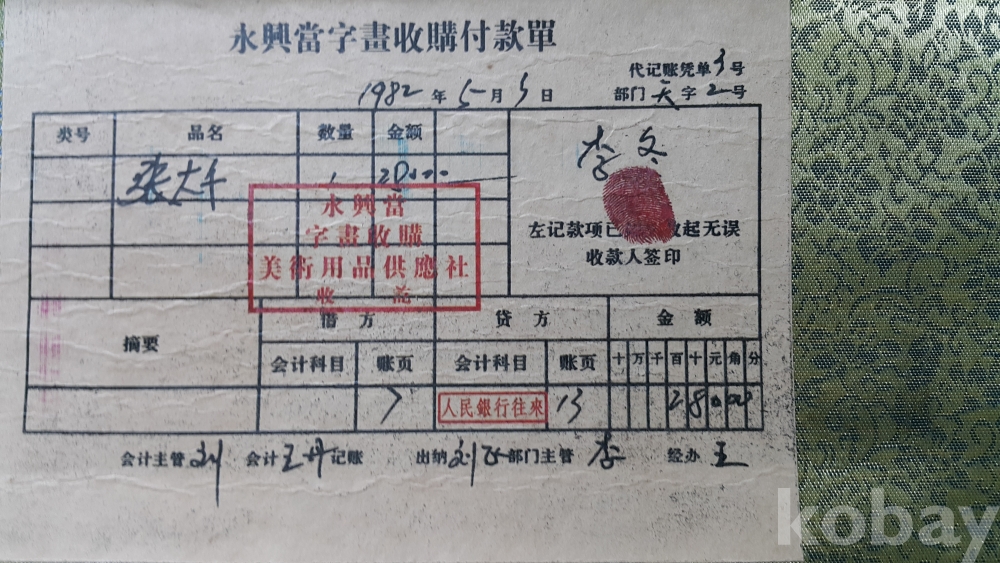 永興當字畫收購付款單
代记账凭单3号
1982年5月3日 部门天字2号
类号 品名 数量 金额
张大千 1 280.00
李文
左记款项已 起无误
收款人签印
永興當
字畫收購
美術用品供應社
收 訖
摘要 借方 贷方 金额
会计科目 账页 会计科目 账页 十 万 千 百 十 元 角 分
7 人民銀行往來 13 2 8 0 0 0
会计主管 刘 会计 王丹 记账 出纳 刘 部门主管 李 经办 王
kobay